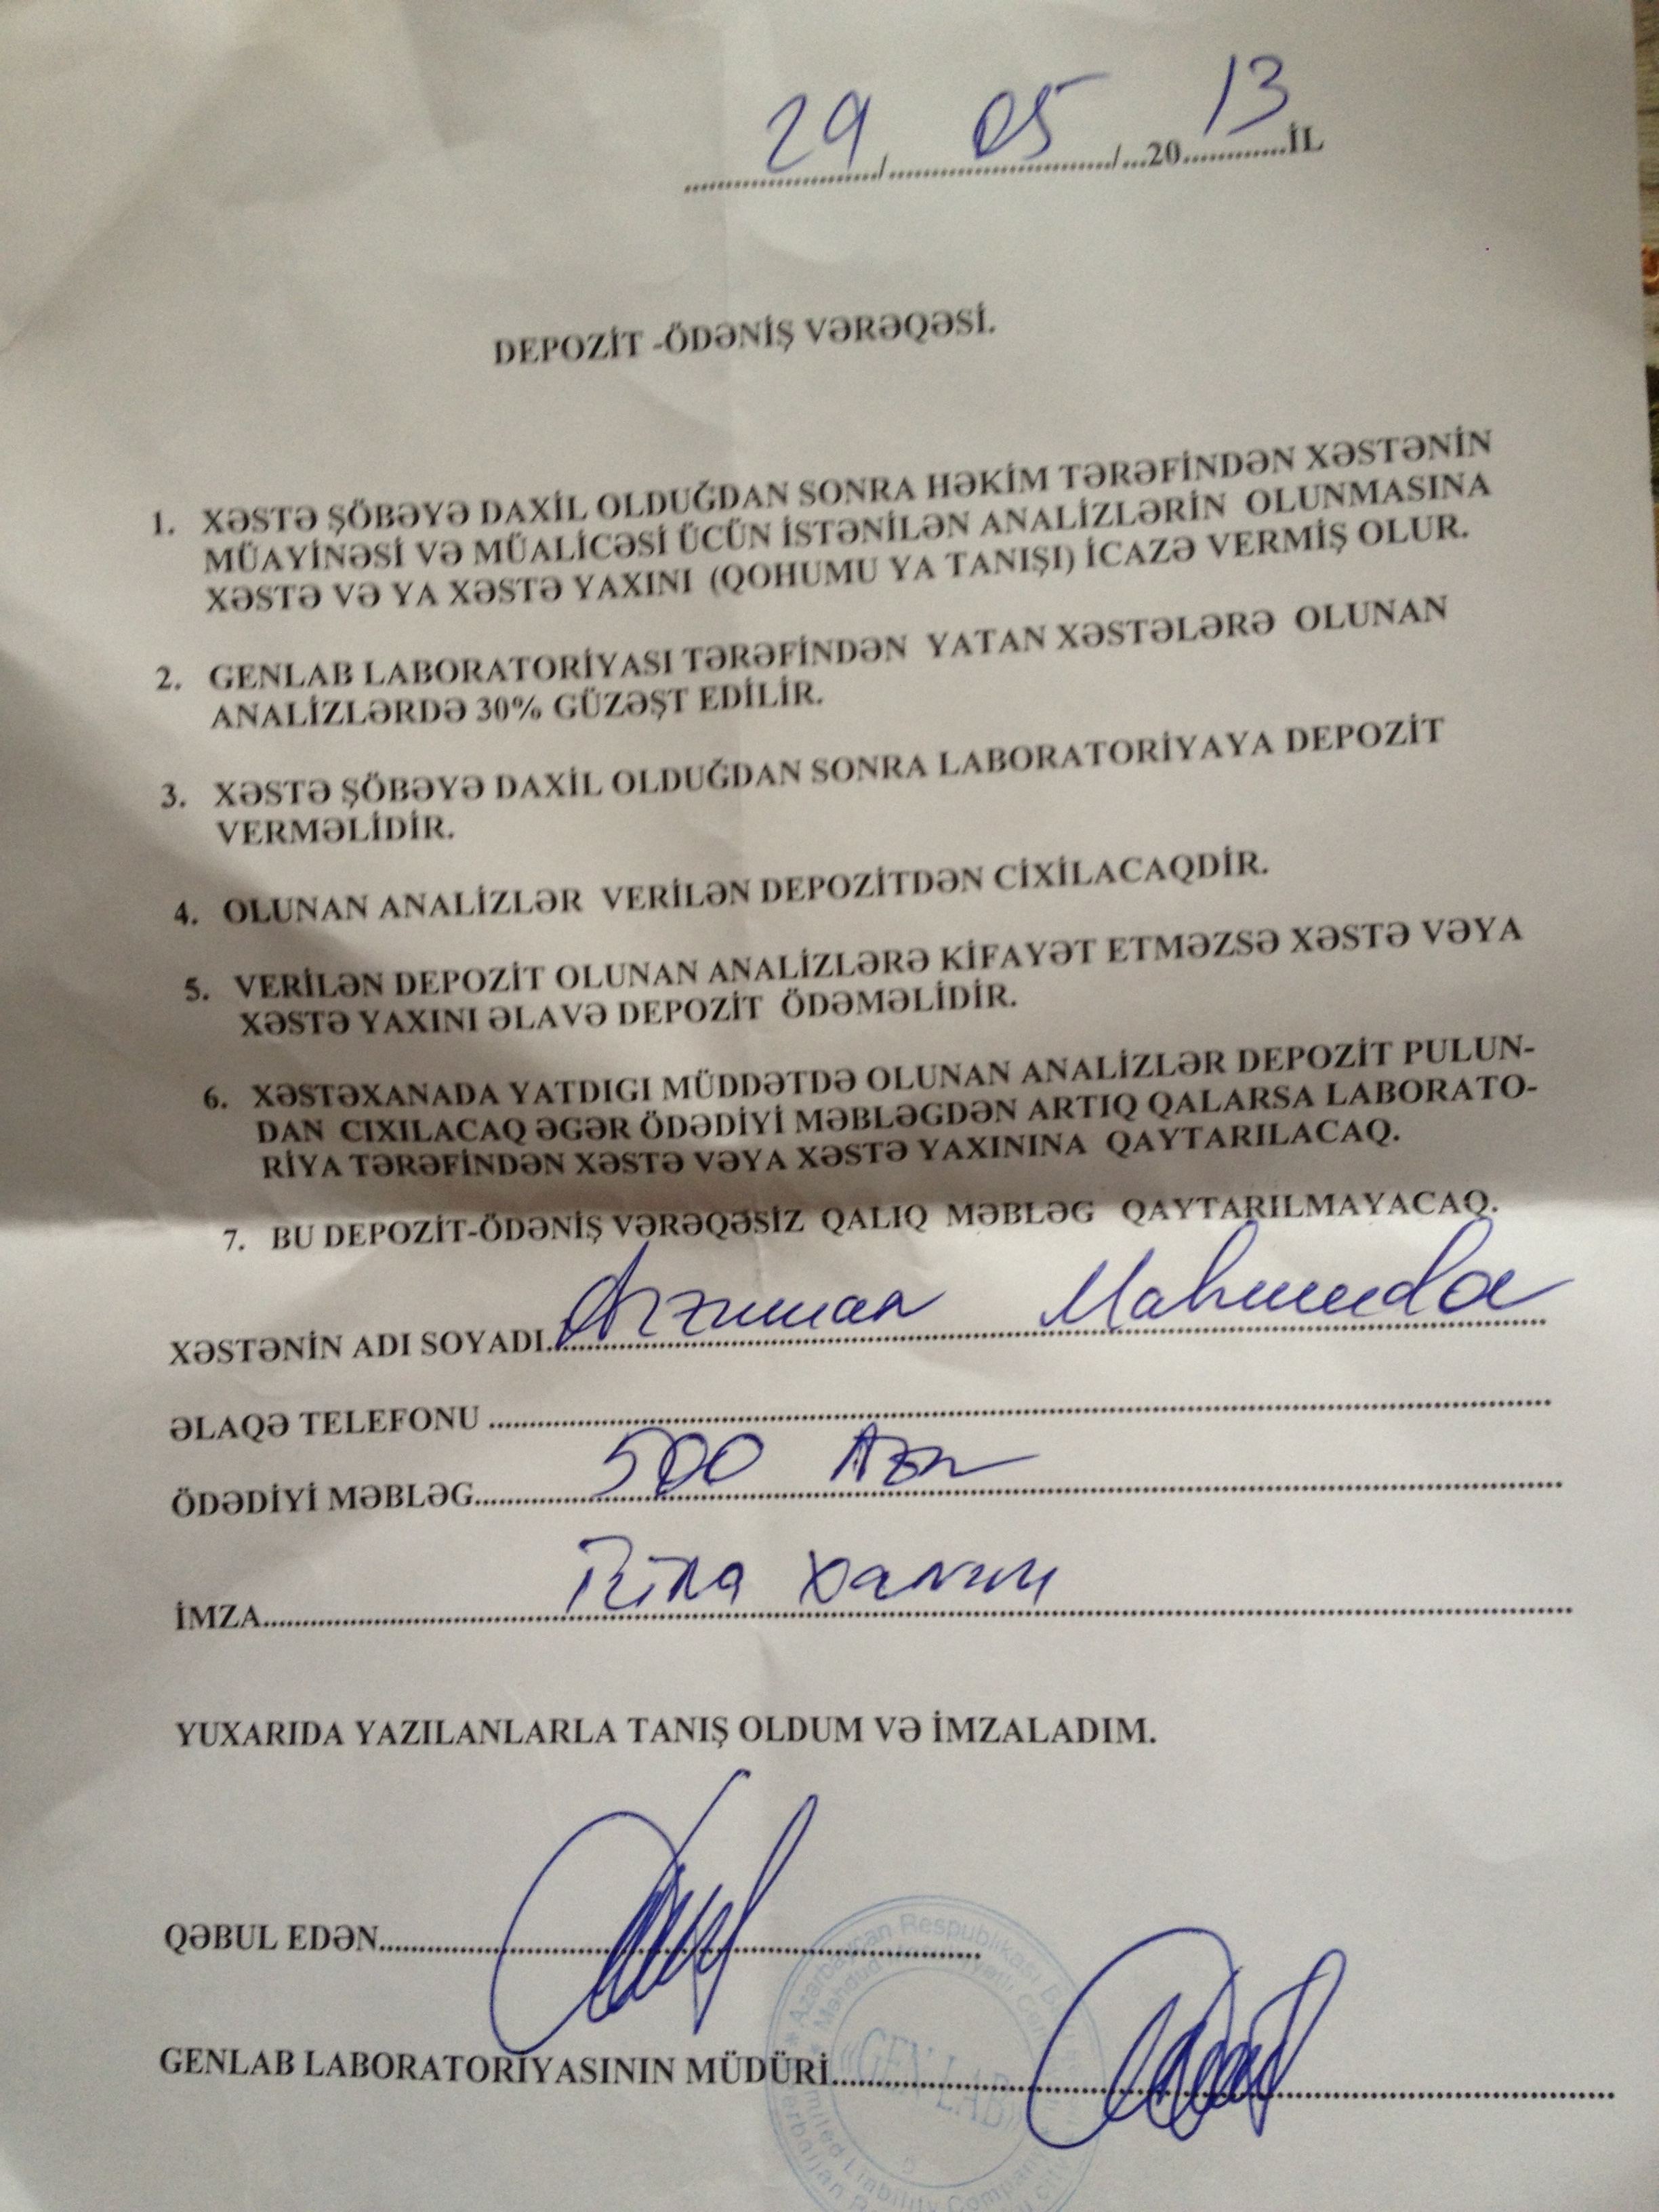 29 / 05 / ...20 13 İL
DEPOZİT -ÖDƏNİŞ VƏRƏQƏSİ.
1. XƏSTƏ ŞÖBƏYƏ DAXİL OLDUĞDAN SONRA HƏKİM TƏRƏFİNDƏN XƏSTƏNİN
MÜAYİNƏSİ VƏ MÜALİCƏSİ ÜCÜN İSTƏNİLƏN ANALİZLƏRİN OLUNMASINA
XƏSTƏ VƏ YA XƏSTƏ YAXINI (QOHUMU YA TANIŞI) İCAZƏ VERMİŞ OLUR.
2. GENLAB LABORATORİYASI TƏRƏFİNDƏN YATAN XƏSTƏLƏRƏ OLUNAN
ANALİZLƏRDƏ 30% GÜZƏŞT EDİLİR.
3. XƏSTƏ ŞÖBƏYƏ DAXİL OLDUĞDAN SONRA LABORATORİYAYA DEPOZİT
VERMƏLİDİR.
4. OLUNAN ANALİZLƏR VERİLƏN DEPOZİTDƏN CİXİLACAQDİR.
5. VERİLƏN DEPOZİT OLUNAN ANALİZLƏRƏ KİFAYƏT ETMƏZSƏ XƏSTƏ VƏYA
XƏSTƏ YAXINI ƏLAVƏ DEPOZİT ÖDƏMƏLİDİR.
6. XƏSTƏXANADA YATDIGI MÜDDƏTDƏ OLUNAN ANALİZLƏR DEPOZİT PULUN-
DAN CIXILACAQ ƏGƏR ÖDƏDİYİ MƏBLƏGDƏN ARTIQ QALARSA LABORATO-
RİYA TƏRƏFİNDƏN XƏSTƏ VƏYA XƏSTƏ YAXININA QAYTARILACAQ.
7. BU DEPOZİT-ÖDƏNİŞ VƏRƏQƏSİZ QALIQ MƏBLƏG QAYTARILMAYACAQ.
XƏSTƏNİN ADI SOYADI Arzuman Mahmuda
ƏLAQƏ TELEFONU
ÖDƏDİYİ MƏBLƏG 500 Azn
İMZA xanım
YUXARIDA YAZILANLARLA TANIŞ OLDUM VƏ İMZALADIM.
QƏBUL EDƏN
GENLAB LABORATORİYASININ MÜDÜRİ
Azərbaycan Respublikası
«GEN LAB»
Limited Liability Company